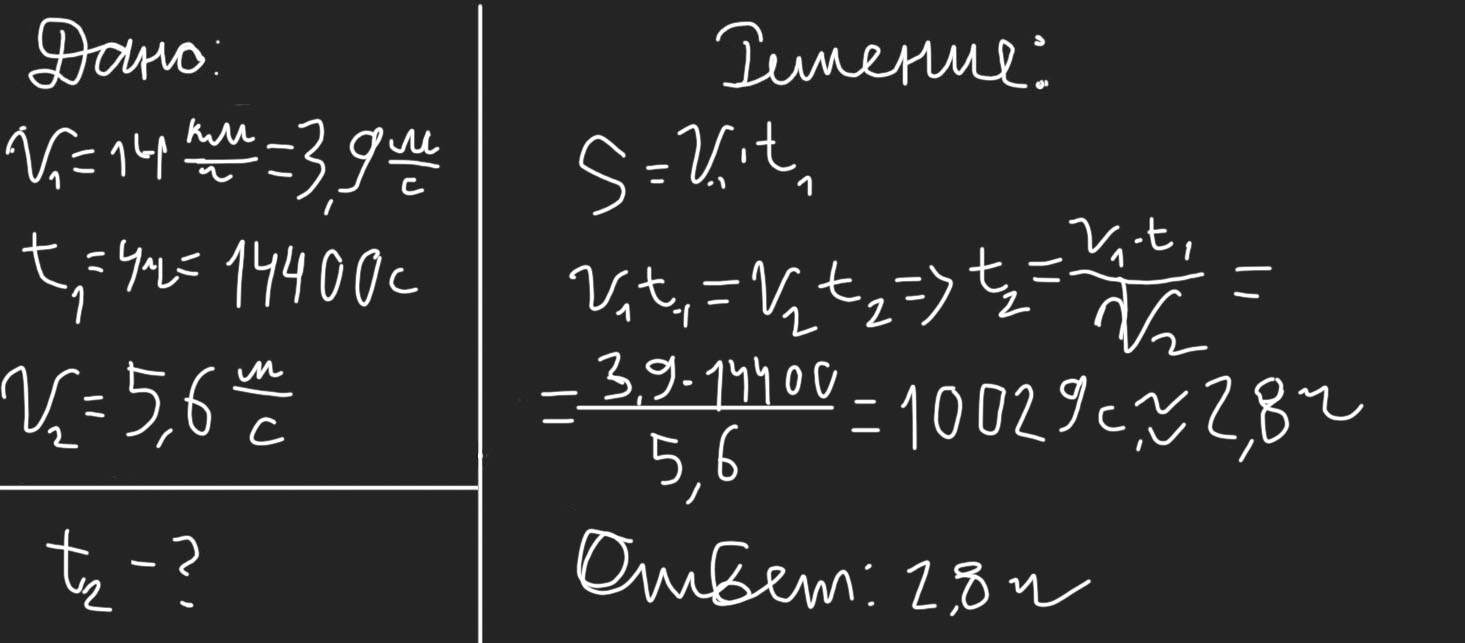 Дано:
V₁ = 14 км/ч = 3,9 м/с
t₁ = 4ч = 14400с
V₂ = 5,6 м/с
t₂ - ?
Решение:
S = V₁·t₁
V₁t₁ = V₂t₂ => t₂ = V₁·t₁/V₂ =
= 3,9·14400/5,6 = 10029с ≈ 2,8ч
Ответ: 2,8ч